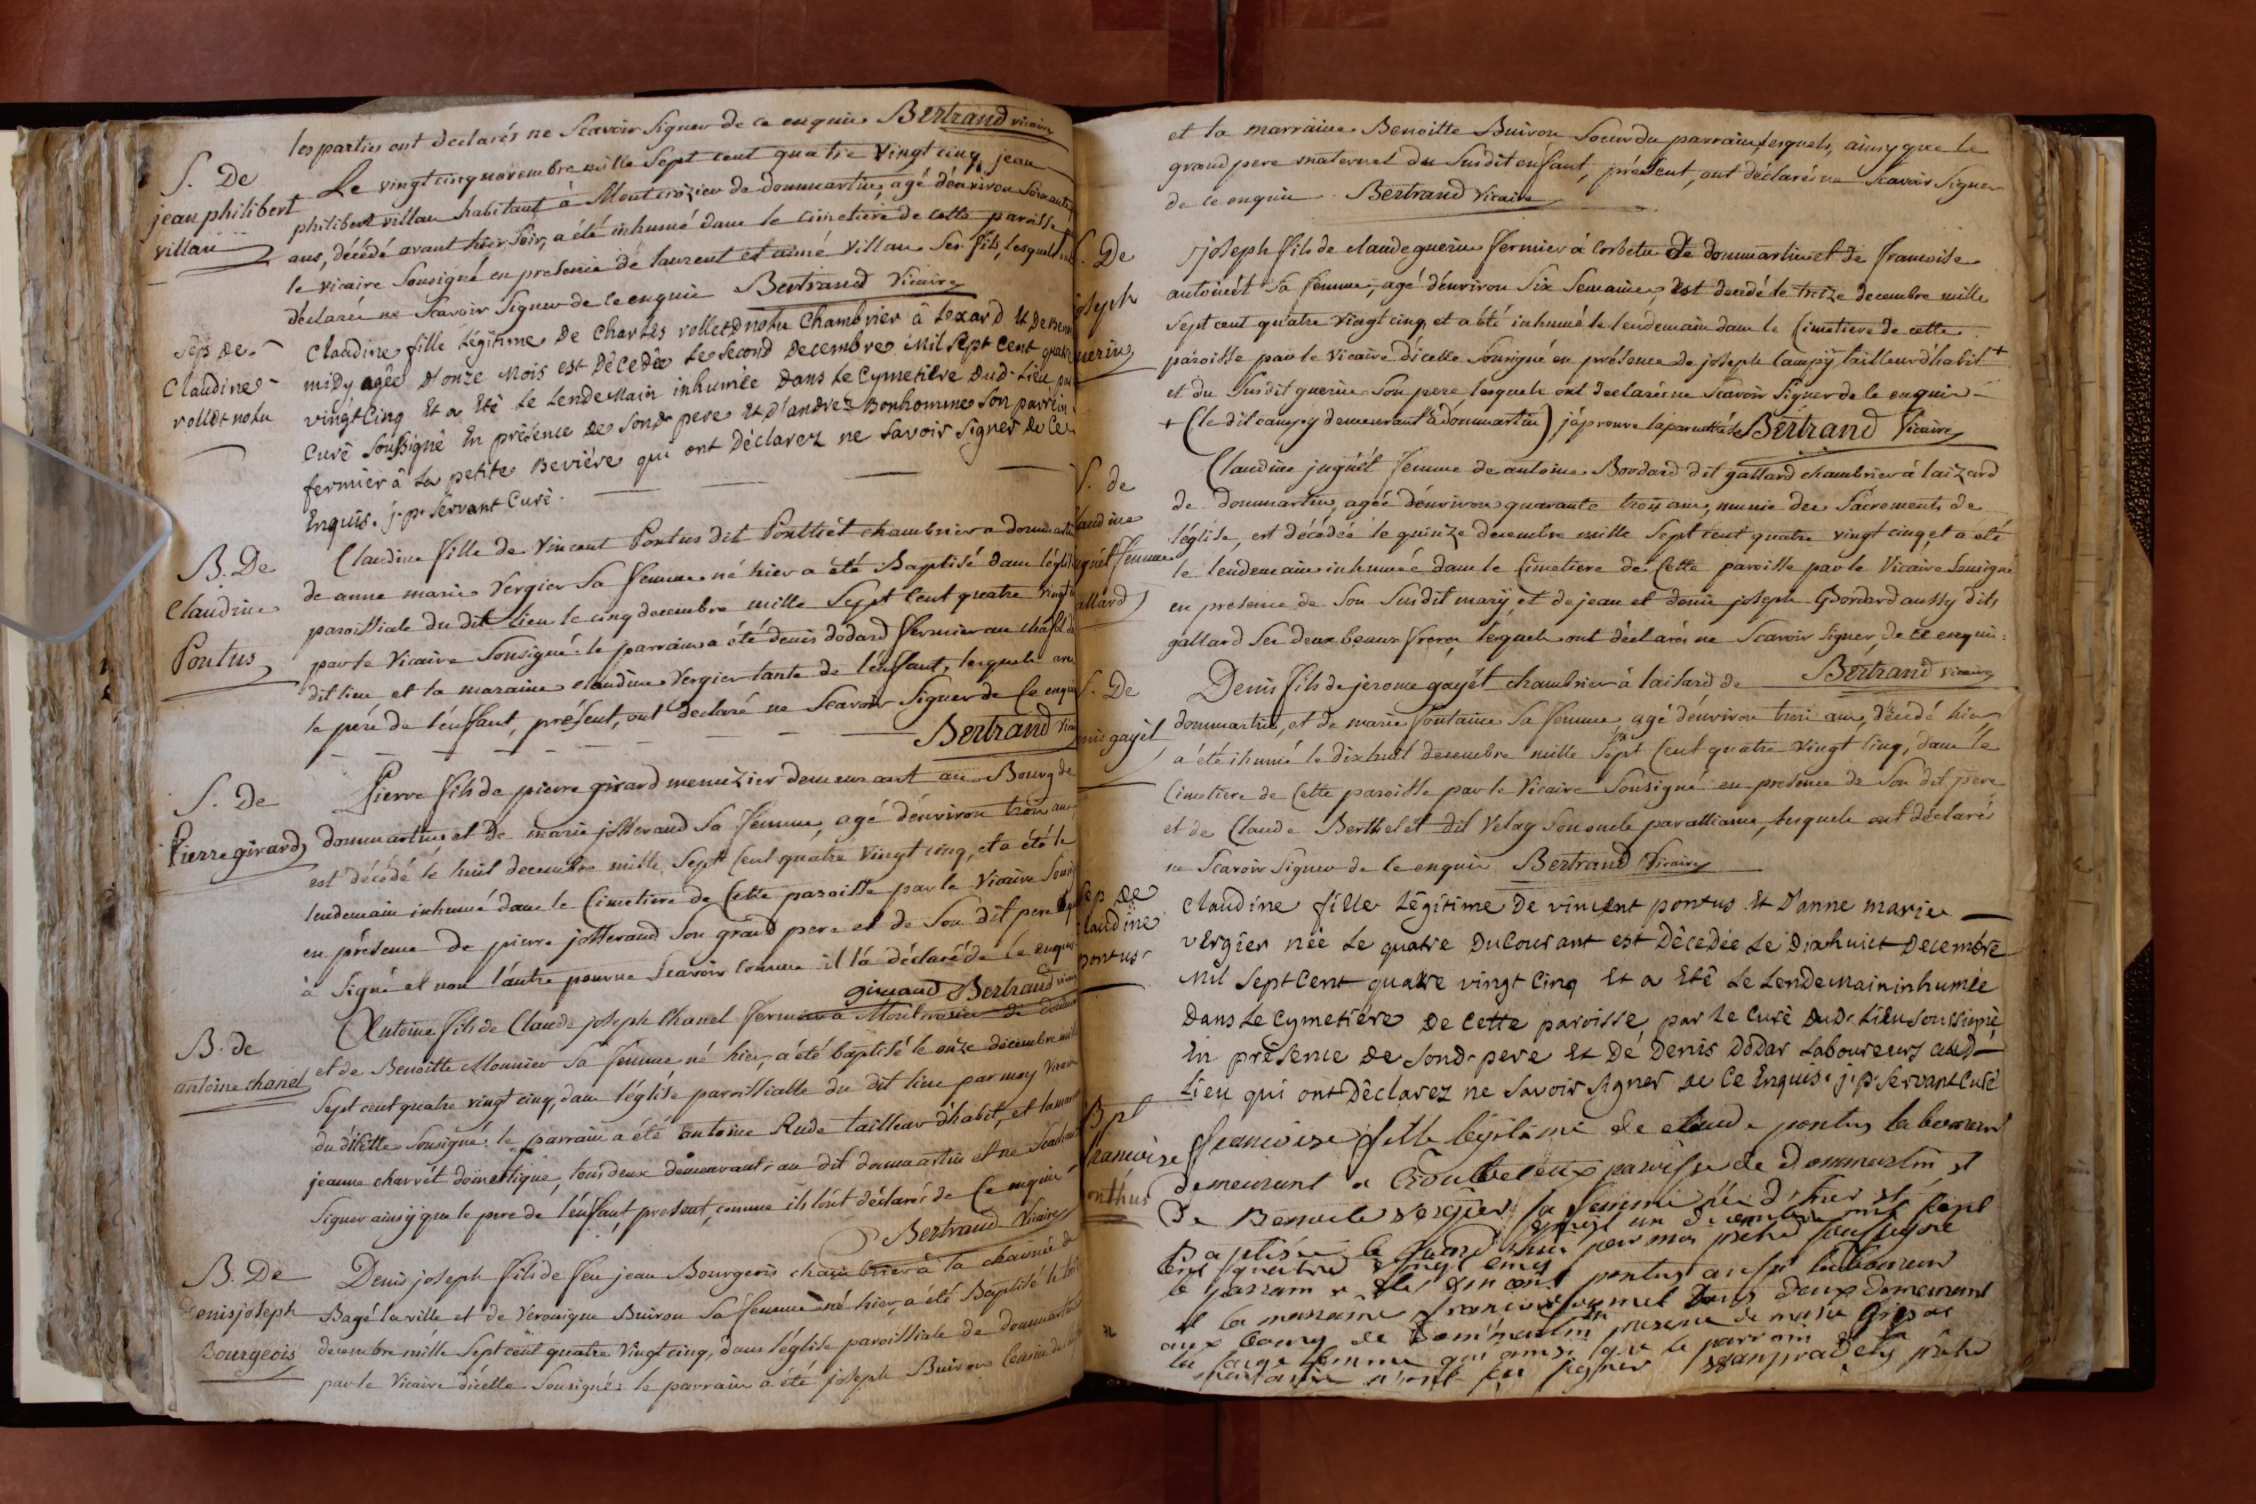 les parties ont declarés ne Scavoir Signer de ce enquis Bertrand vicaire
S. De
jean philibert
villan
Le vingt cinq novembre mille Sept cent quatre vingt cinq, jean
philibert villan habitant à Montcrozier de dommartin, agé dénviron Soixante
ans, décédé avant hier Soir, a été inhumé dans le cimetiere de cette paroisse
le vicaire Sousigné en presence de laurent et aimé villan Ses fils, lesquels
déclarés ne Scavoir Signer de ce enquis Bertrand Vicaire
Sep. de
Claudine
rollet notu
Claudine fille Légitime De Charles rollet d notu Chambrier à Lexard Et De
midy agée D'onze Mois est Décedée Le Second Decembre Mil Sept Cent quatre
vingt Cinq Et a Eté Le LendeMain inhumée Dans Le Cymetiére Dud. Lieu
Curé Soussigné En présence De Sond. pere Et D'andrez Bonhomme Son parrein
fermier à La petite Beviére qui ont Déclarez ne Savoir Signer De Ce
Enquis. j. p. Servant Curé.
B. De
Claudine
Pontus
Claudine fille de Vincent Pontus dit Ponthiet chambrier a
de anne marie Vergier Sa femme né hier a été Baptisé dans
paroissiale du dit lieu le cinq decembre mille Sept Cent quatre vingt
par le Vicaire Sousigné. le parrain a été denis dodard fermier au
dit lieu et la maraine claudine Vergier tante de l'enfant, lesquels
le pere de l'enfant, présent, ont declaré ne Scavoir Signer de Ce enquis
Bertrand
S. De
Pierre girard
Pierre fils de pierre girard menuizier demeurant au Bourg de
dommartin, et De marie josserand Sa femme, agé dénviron trois ans
est décédé le huit decembre mille Sept Cent quatre Vingt cinq, et a été le
lendemain inhumé dans le Cimetiere de Cette paroisse par le Vicaire
en présence de pierre josserand Son grand pere et de Son dit pere
à Signé et non l'autre pour ne Scavoir comme il l'a déclaré de Ce enquis
girard Bertrand
B. de
antoine chanel
Antoine fils de Claude joseph Chanel fermier a Montcrozier de
et de Benoitte Monnier Sa femme né hier, a été baptisé le onze decembre
Sept cent quatre vingt cinq, dans l'églisé paroissialle du dit lieu par moy
du dit Sousigné. le parrain a été antoine Rude tailleur d'habit, et la
jeanne charvet domestique, tous deux demeurant au dit dommartin et ne
Signer ainsy que le pere de l'enfant, present, comme ils l'ont déclarés de Ce enquis
Bertrand Vicaire
B. De
denis joseph
Bourgeois
Denis joseph fils de feu jean Bourgeois chambrier à la de
Bagé la ville et de Veronique Buiron Sa femme né hier, a été Baptisé le
decembre mille Sept cent quatre Vingt cinq, dans l'église paroissiale de dommartin
par le Vicaire dicelle Sousigné. le parrain a été joseph Buiron
et la marraine Benoitte Buiron Soeur du parrain lesquels, ainsy que le
grand pere maternel du Susdit enfant, présent, ont déclarés ne Scavoir Signer
de ce enquis Bertrand Vicaire
S. De
joseph
guerin
joseph fils de claude guerin fermier á Corbetu De dommartin et de francoise
antoinét Sa femme, agé dénviron Six Semaines, est decedé le treize decembre mille
Sept cent quatre Vingt cinq, et a été inhumé le lendemain dans le Cimetiere de cette
paroisse par le Vicaire dicelle Sousigné en présence de joseph campy tailleur d'habit +
et du Susdit guerin Son pere lesquels ont declarés ne Scavoir Signer de Ce enquis
+ (le dit campy demeurant à dommartin) j'áprouve la parenthése Bertrand Vicaire
S. de
Claudine
juguét femme
gallard
Claudine juguét femme de antoine Bordard dit gallard chambrier á laizard
de dommartin, agée dénviron quarante trois ans, munie des Sacrements de
l'église, est décédée le quinze decembre mille Sept Cent quatre vingt cinq, et a été
le lendemain inhumée dans le Cimetiere de Cette paroisse par le Vicaire Sousigné
en presence de Son Susdit mary, et de jean et denis joseph Bordard aussy dits
gallard Ses deux beaux freres, lesquels ont déclarés ne Scavoir Signer, de ce enquis:
Bertrand vicaire
S. De
denis gayét
Denis fils de jerome gayét chambrier à laisard de
dommartin, et de marie fontaine Sa femme, agé dénviron trois ans, décédé hier
a été ihumé le dix huit decembre mille Sept Cent quatre vingt Cinq, dans le
Cimetiere de Cette paroisse par le Vicaire Sousigné en presence de Son dit pere
et de Claude Berthelét dit Velay Son oncle par alliance, lesquels ont déclarés
ne Scavoir Signer de Ce enquis Bertrand Vicaire
Sep. De
Claudine
pontus
Claudine fille Légitime De vincent pontus Et D'anne marie
vergier née Le quatre Du Courant est Décedée Le Dixhuict Decembre
Mil Sept Cent quatre vingt Cinq Et a Eté Le Lendemain inhumée
Dans Le Cymetiére De Cette paroisse par Le Curé Dud. Lieu Soussigné
En présence De Sond. pere Et Dé Denis Dodar Laboureurs aud.
Lieu qui ont Déclarez ne Savoir Signer De Ce Enquis. j. p. Servant Curé
Bpt
francoise
ponthus
francoise fille légitime de claude pontus laboureur
demeurant a paroisse de Dommartin et
De Benoite vergier sa femme née d'hier et
Baptisée le vingt un decembre mil sept
cent quatre vingt cinq par moi prêtre soussigné
le parrain a été vincent pontus aussi laboureur
et la marraine francoise tous deux demeurant
aux bourg de Dommartin en presence de marie
la sage femme qui ainsi que le parrain et la
marraine n'ont su signer prêtre